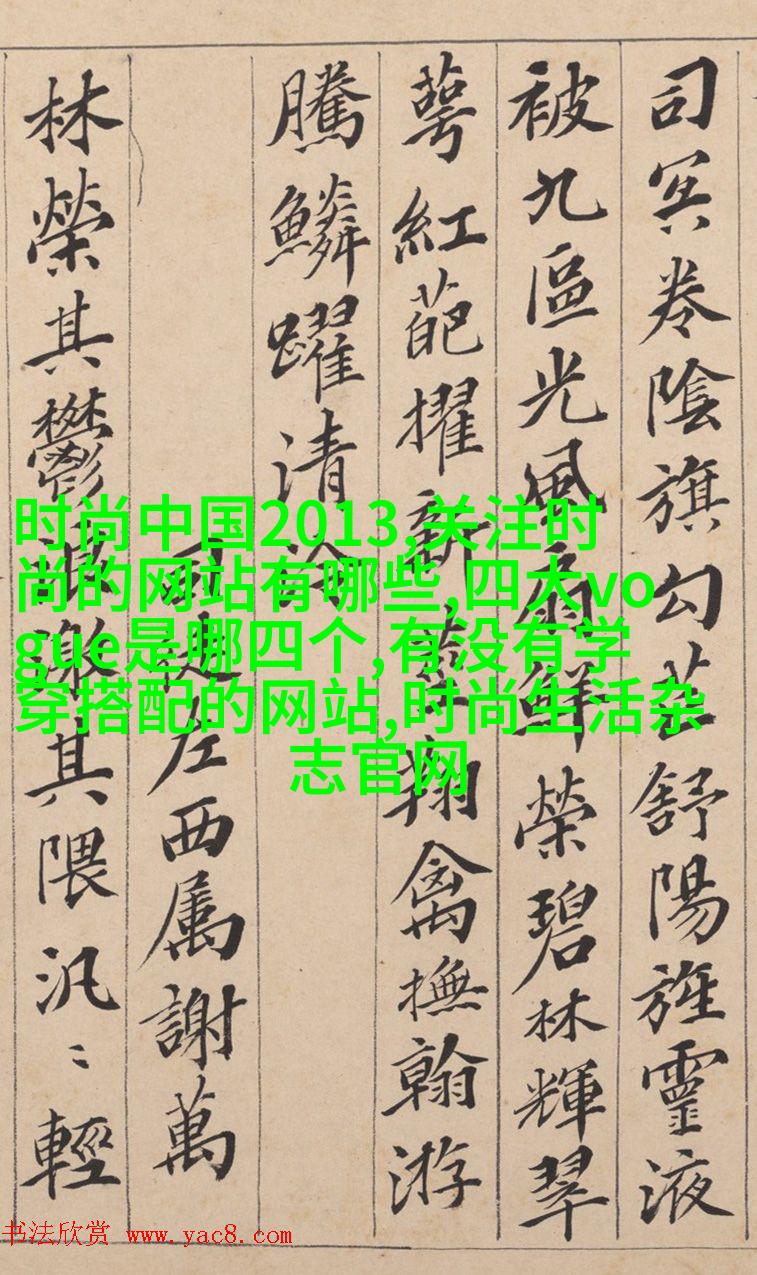 司冥卷陰旗勾芒舒陽旌靈液
被九區光風扇鮮榮碧林輝翠
萼紅葩擢新莖翔禽撫翰游
騰鱗躍清泠
司徒左西属謝萬
林榮其鬱浪激其隈汎〻輕
时尚中国2013,关注时
尚的网站有哪些,四大vo
gue是哪四个,有没有学
穿搭配的网站,时尚生活杂
志官网
书法欣赏 www.yac8.com